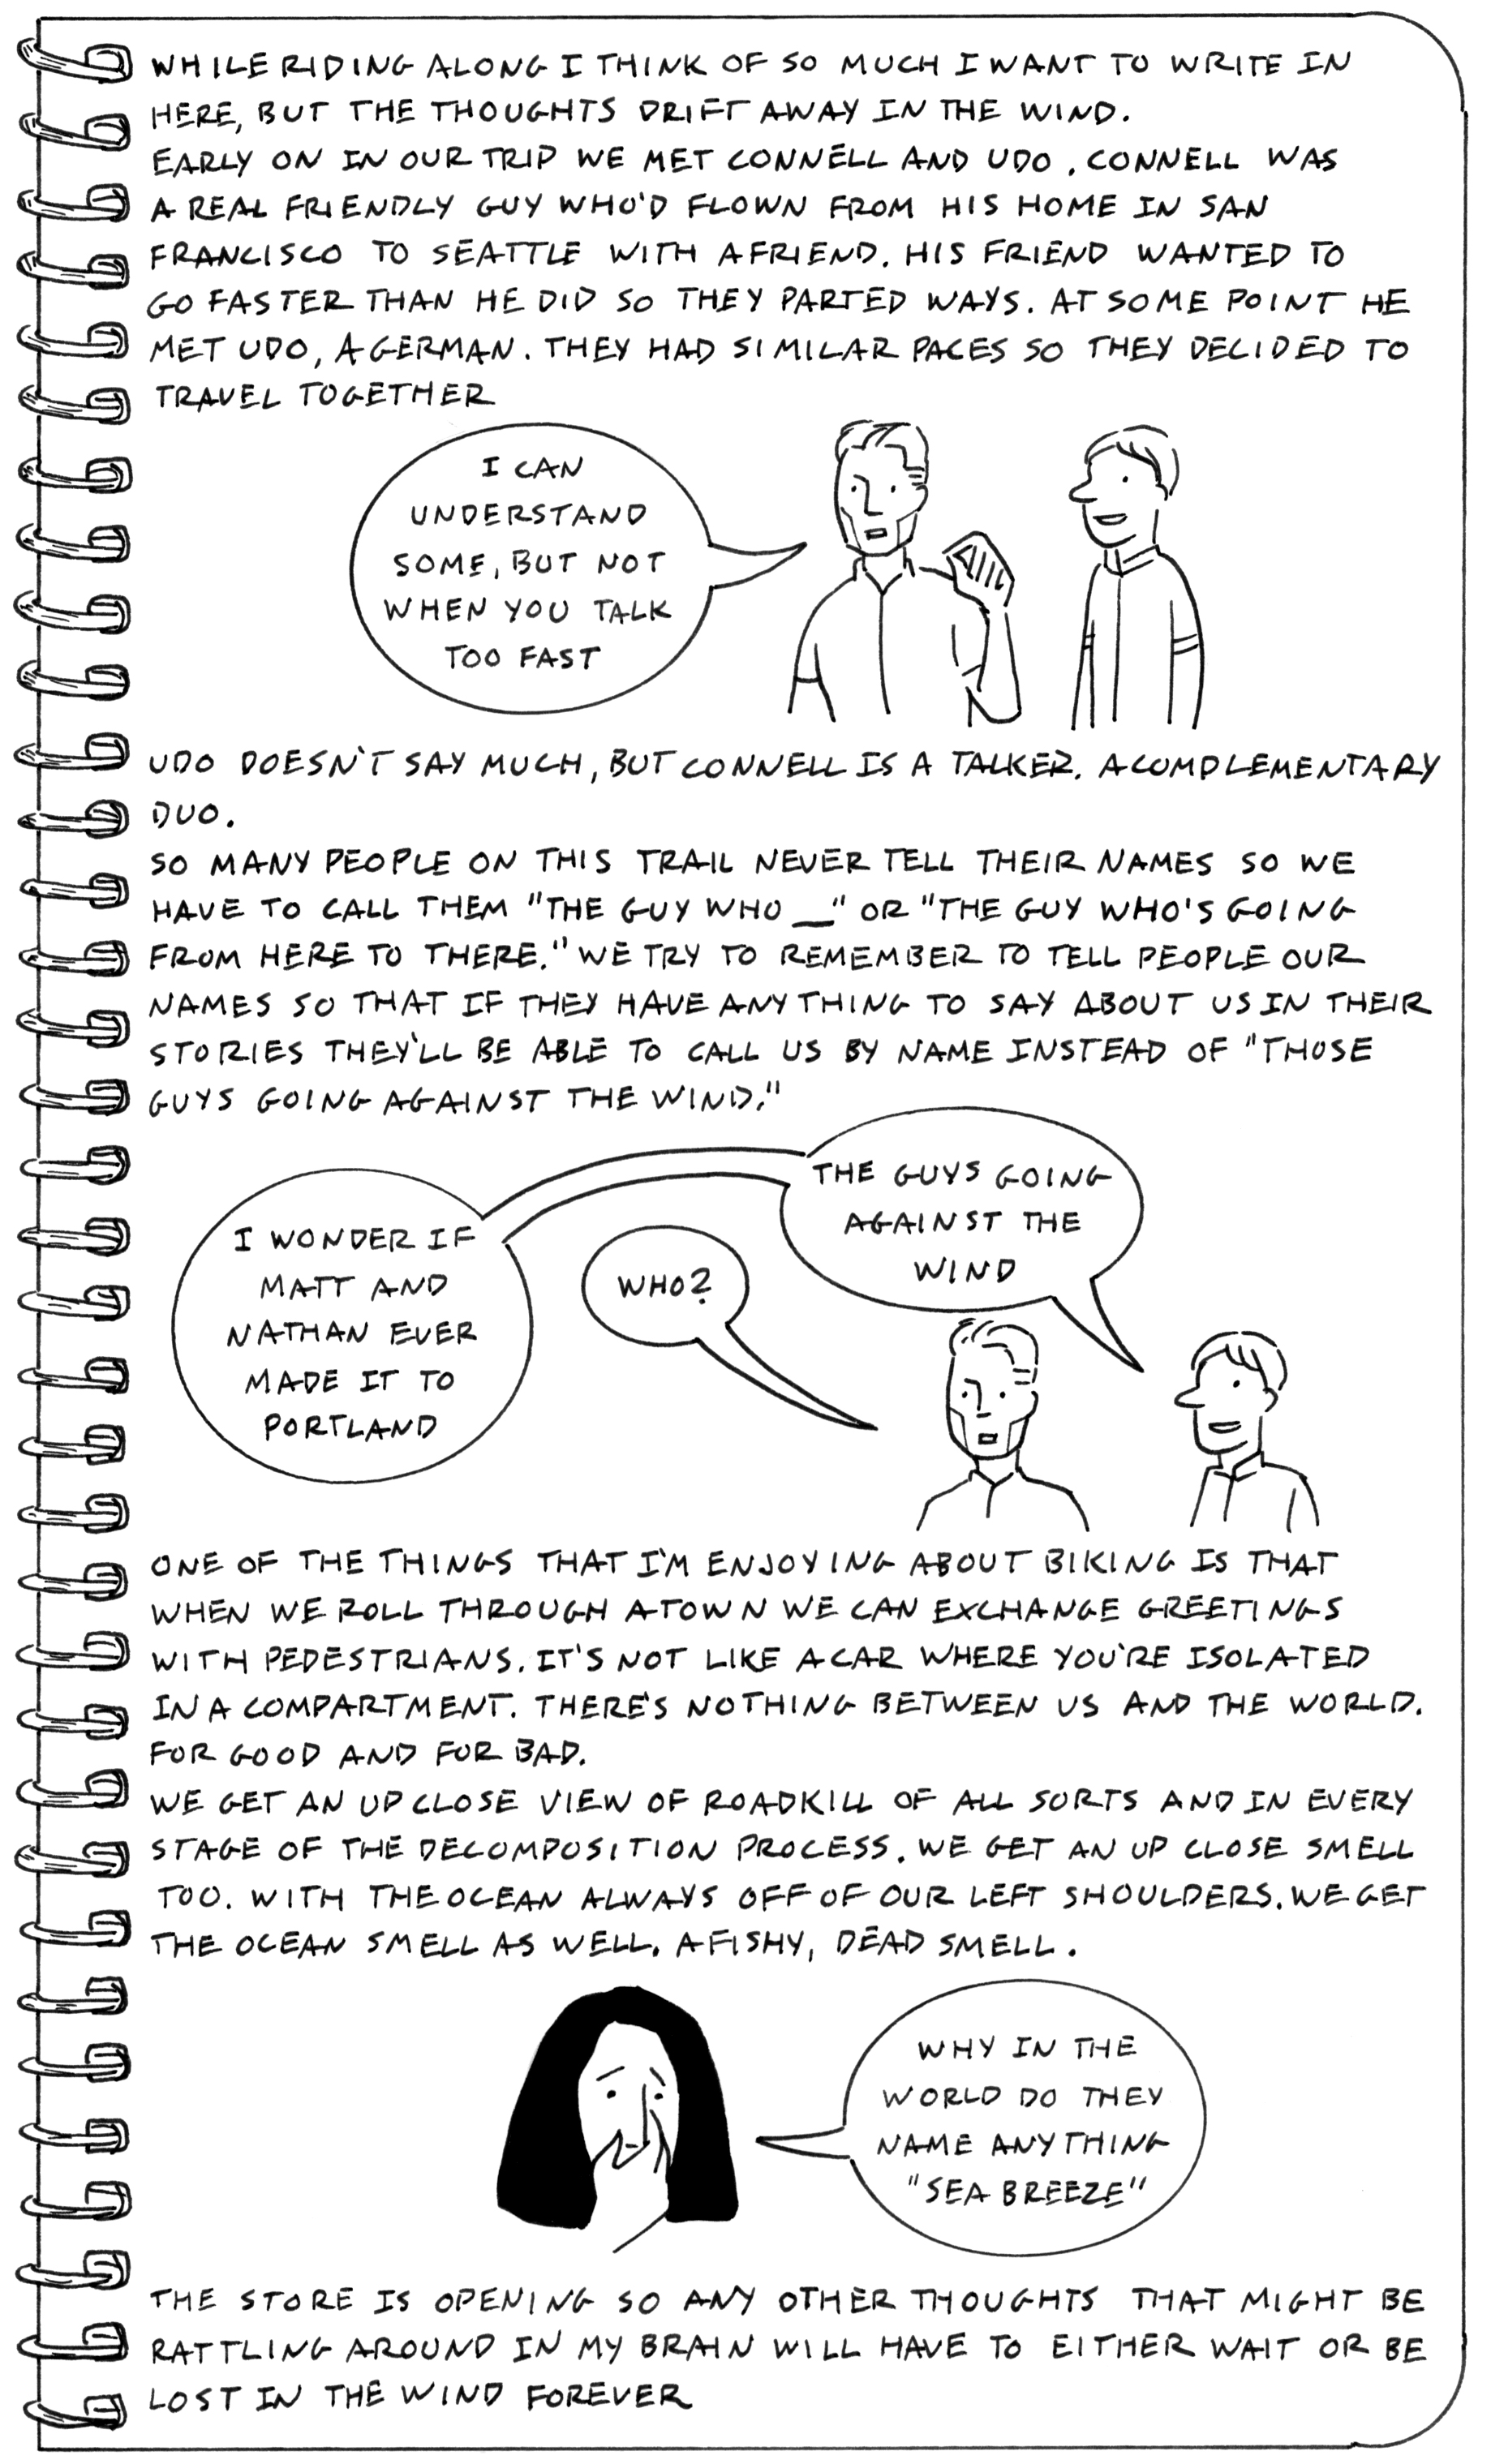 WHILE RIDING ALONG I THINK OF SO MUCH I WANT TO WRITE IN
HERE, BUT THE THOUGHTS DRIFT AWAY IN THE WIND.
EARLY ON IN OUR TRIP WE MET CONNELL AND UDO. CONNELL WAS
A REAL FRIENDLY GUY WHO'D FLOWN FROM HIS HOME IN SAN
FRANCISCO TO SEATTLE WITH A FRIEND. HIS FRIEND WANTED TO
GO FASTER THAN HE DID SO THEY PARTED WAYS. AT SOME POINT HE
MET UDO, A GERMAN. THEY HAD SIMILAR PACES SO THEY DECIDED TO
TRAVEL TOGETHER
I CAN
UNDERSTAND
SOME, BUT NOT
WHEN YOU TALK
TOO FAST
UDO DOESN'T SAY MUCH, BUT CONNELL IS A TALKER. A COMPLEMENTARY
DUO.
SO MANY PEOPLE ON THIS TRAIL NEVER TELL THEIR NAMES SO WE
HAVE TO CALL THEM "THE GUY WHO __" OR "THE GUY WHO'S GOING
FROM HERE TO THERE." WE TRY TO REMEMBER TO TELL PEOPLE OUR
NAMES SO THAT IF THEY HAVE ANYTHING TO SAY ABOUT US IN THEIR
STORIES THEY'LL BE ABLE TO CALL US BY NAME INSTEAD OF "THOSE
GUYS GOING AGAINST THE WIND."
I WONDER IF
MATT AND
NATHAN EVER
MADE IT TO
PORTLAND
WHO?
THE GUYS GOING
AGAINST THE
WIND
ONE OF THE THINGS THAT I'M ENJOYING ABOUT BIKING IS THAT
WHEN WE ROLL THROUGH A TOWN WE CAN EXCHANGE GREETINGS
WITH PEDESTRIANS. IT'S NOT LIKE A CAR WHERE YOU'RE ISOLATED
IN A COMPARTMENT. THERE'S NOTHING BETWEEN US AND THE WORLD.
FOR GOOD AND FOR BAD.
WE GET AN UP CLOSE VIEW OF ROADKILL OF ALL SORTS AND IN EVERY
STAGE OF THE DECOMPOSITION PROCESS. WE GET AN UP CLOSE SMELL
TOO. WITH THE OCEAN ALWAYS OFF OF OUR LEFT SHOULDERS. WE GET
THE OCEAN SMELL AS WELL. A FISHY, DEAD SMELL.
WHY IN THE
WORLD DO THEY
NAME ANYTHING
"SEA BREEZE"
THE STORE IS OPENING SO ANY OTHER THOUGHTS THAT MIGHT BE
RATTLING AROUND IN MY BRAIN WILL HAVE TO EITHER WAIT OR BE
LOST IN THE WIND FOREVER